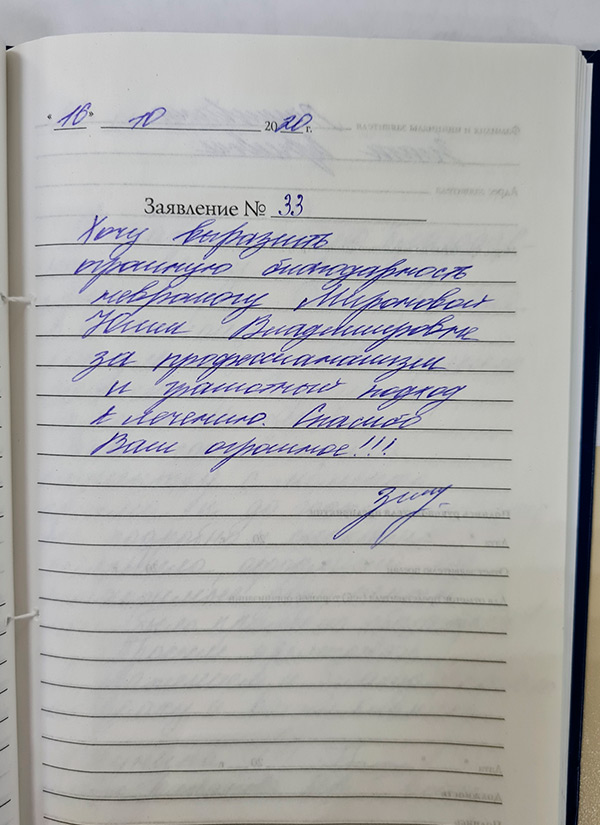 « 16 » 10 2020 г.
Заявление № 33
Хочу выразить
огромную благодарность
неврологу Мироновой
Юлии Владимировне
за профессионализм
и грамотный подход
к лечению. Спасибо
Вам огромное!!!